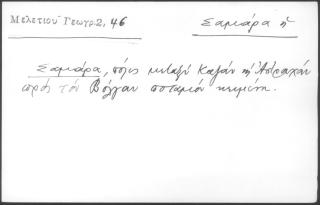 Μελετίου Γεωγρ. 2, 46
Σαμάρα ἡ
Σαμάρα, πόλις μεταξὺ Καζὰν καὶ Ἀστραχὰν
πρὸς τὸν Βόλγαν ποταμὸν κειμένη.